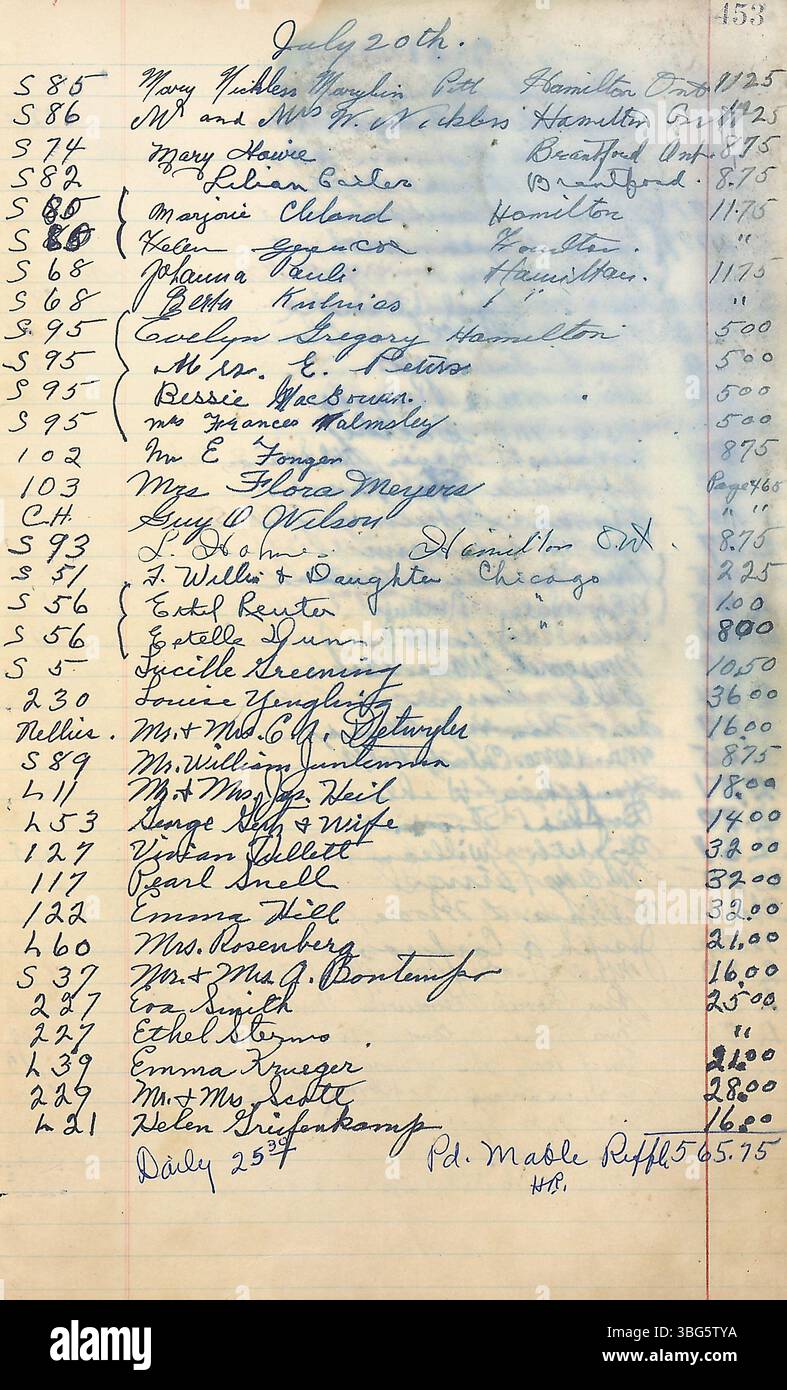 453
July 20th.
S 85 Mary Nickless Marylin Pett Hamilton Ont 11.25
S 86 Mr and Mrs W. Nickless Hamilton On 11.25
S 74 Mary Howie Brantford Ont. 8.75
S 82 Lilian Carter Brantford. 8.75
S 80 Marjorie Cleland Hamilton 11.75
S 80 Helen "
S 68 Johanna Pauli Hamilton. 11.75
S 68 Berta " "
S. 95 Evelyn Gregory Hamilton 500
S 95 Mrs. E. Peters 500
S 95 Bessie MacGowan. 500
S 95 Mrs Frances Walmsley 500
102 E Fonger 875
103 Mrs Flora Meyers Page 465
C.H. Guy O Wilson " "
S 93 L. Holmes Hamilton Ont. 8.75
S 51 F. Willis & Daughter Chicago 2 25
S 56 Ethel Reuter " 1.00
S 56 Estelle Dunn " 800
S 5 Lucille Greening 10.50
230 Louise Yengling 36.00
Nellies. Mr. & Mrs. C. N. Detwyler 16.00
S 89 Mr. William Juntunma 875
L 11 Mr. & Mrs. Jas. Heil 18.00
L 53 George & Wife 14.00
127 Vivian Tullett 32.00
117 Pearl Snell 32.00
122 Emma Hill 32.00
L 60 Mrs. Rosenberg 21.00
S 37 Mr. & Mrs A. Bontempo 16.00
227 Eva Smith 25.00
227 Ethel "
L 39 Emma Krueger 21.00
229 Mr. & Mrs. Scott 28.00
L 21 Helen Greifenkamp 16.00
Daily 25 39 Pd. Mable Riffle 565.75
HR.
alamy
Image ID: 3BG5TYA
www.alamy.com